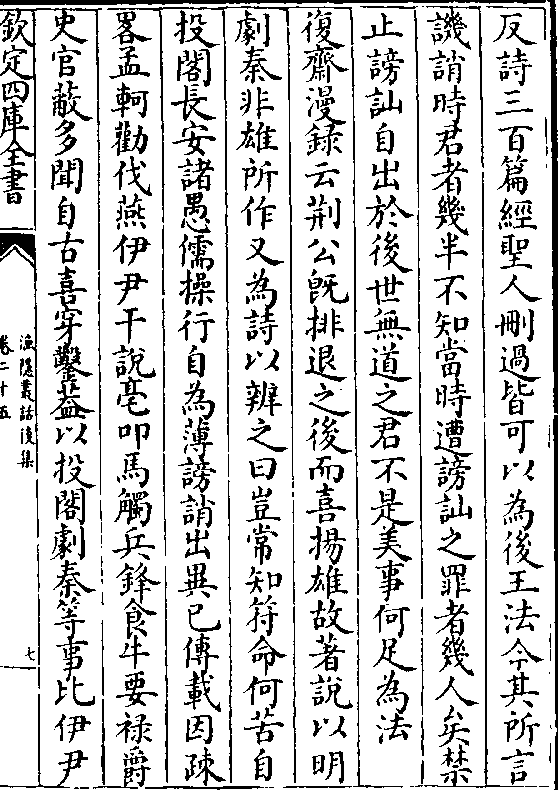 反詩三百篇經聖人刪過皆可以為後王法今其所言
譏誚時君者幾半不知當時遭謗訕之罪者幾人矣禁
止謗訕自出於後世無道之君不是美事何足為法
復齋漫録云荆公既排退之後而喜揚雄故著説以明
劇秦非雄所作又為詩以辨之曰豈常知符命何苦自
投閣長安諸愚儒操行自為薄謗誚出異已傳載因疎
畧孟軻勸伐燕伊尹干説亳叩馬觸兵鋒食牛要禄爵
史官蔽多聞自古喜穿鑿蓋以投閣劇秦等事比伊尹
欽定四庫全書
漁隠叢話後集
卷二十五
七